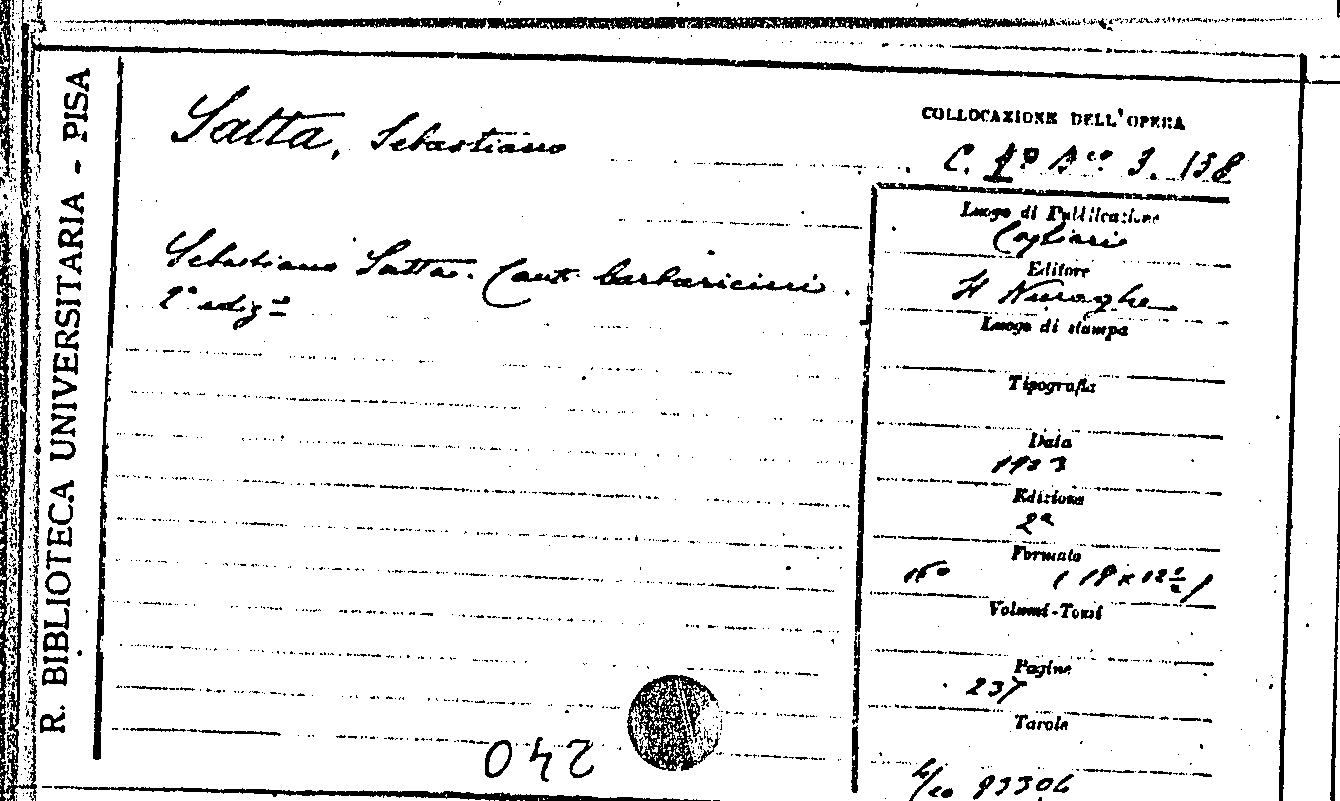 R. BIBLIOTECA UNIVERSITARIA - PISA
Satta, Sebastiano
Sebastiano Satta. Canti barbaricini.
2ª ediz.
COLLOCAZIONE DELL'OPERA
3. 138
Luogo di Pubblicazione
Cagliari
Editore
Il Nuraghe
Luogo di stampa
Tipografia
Data
1923
Edizione
2ª
Formato
16° (18 x 12 ½)
Volumi-Tomi
Pagine
237
Tavole
240